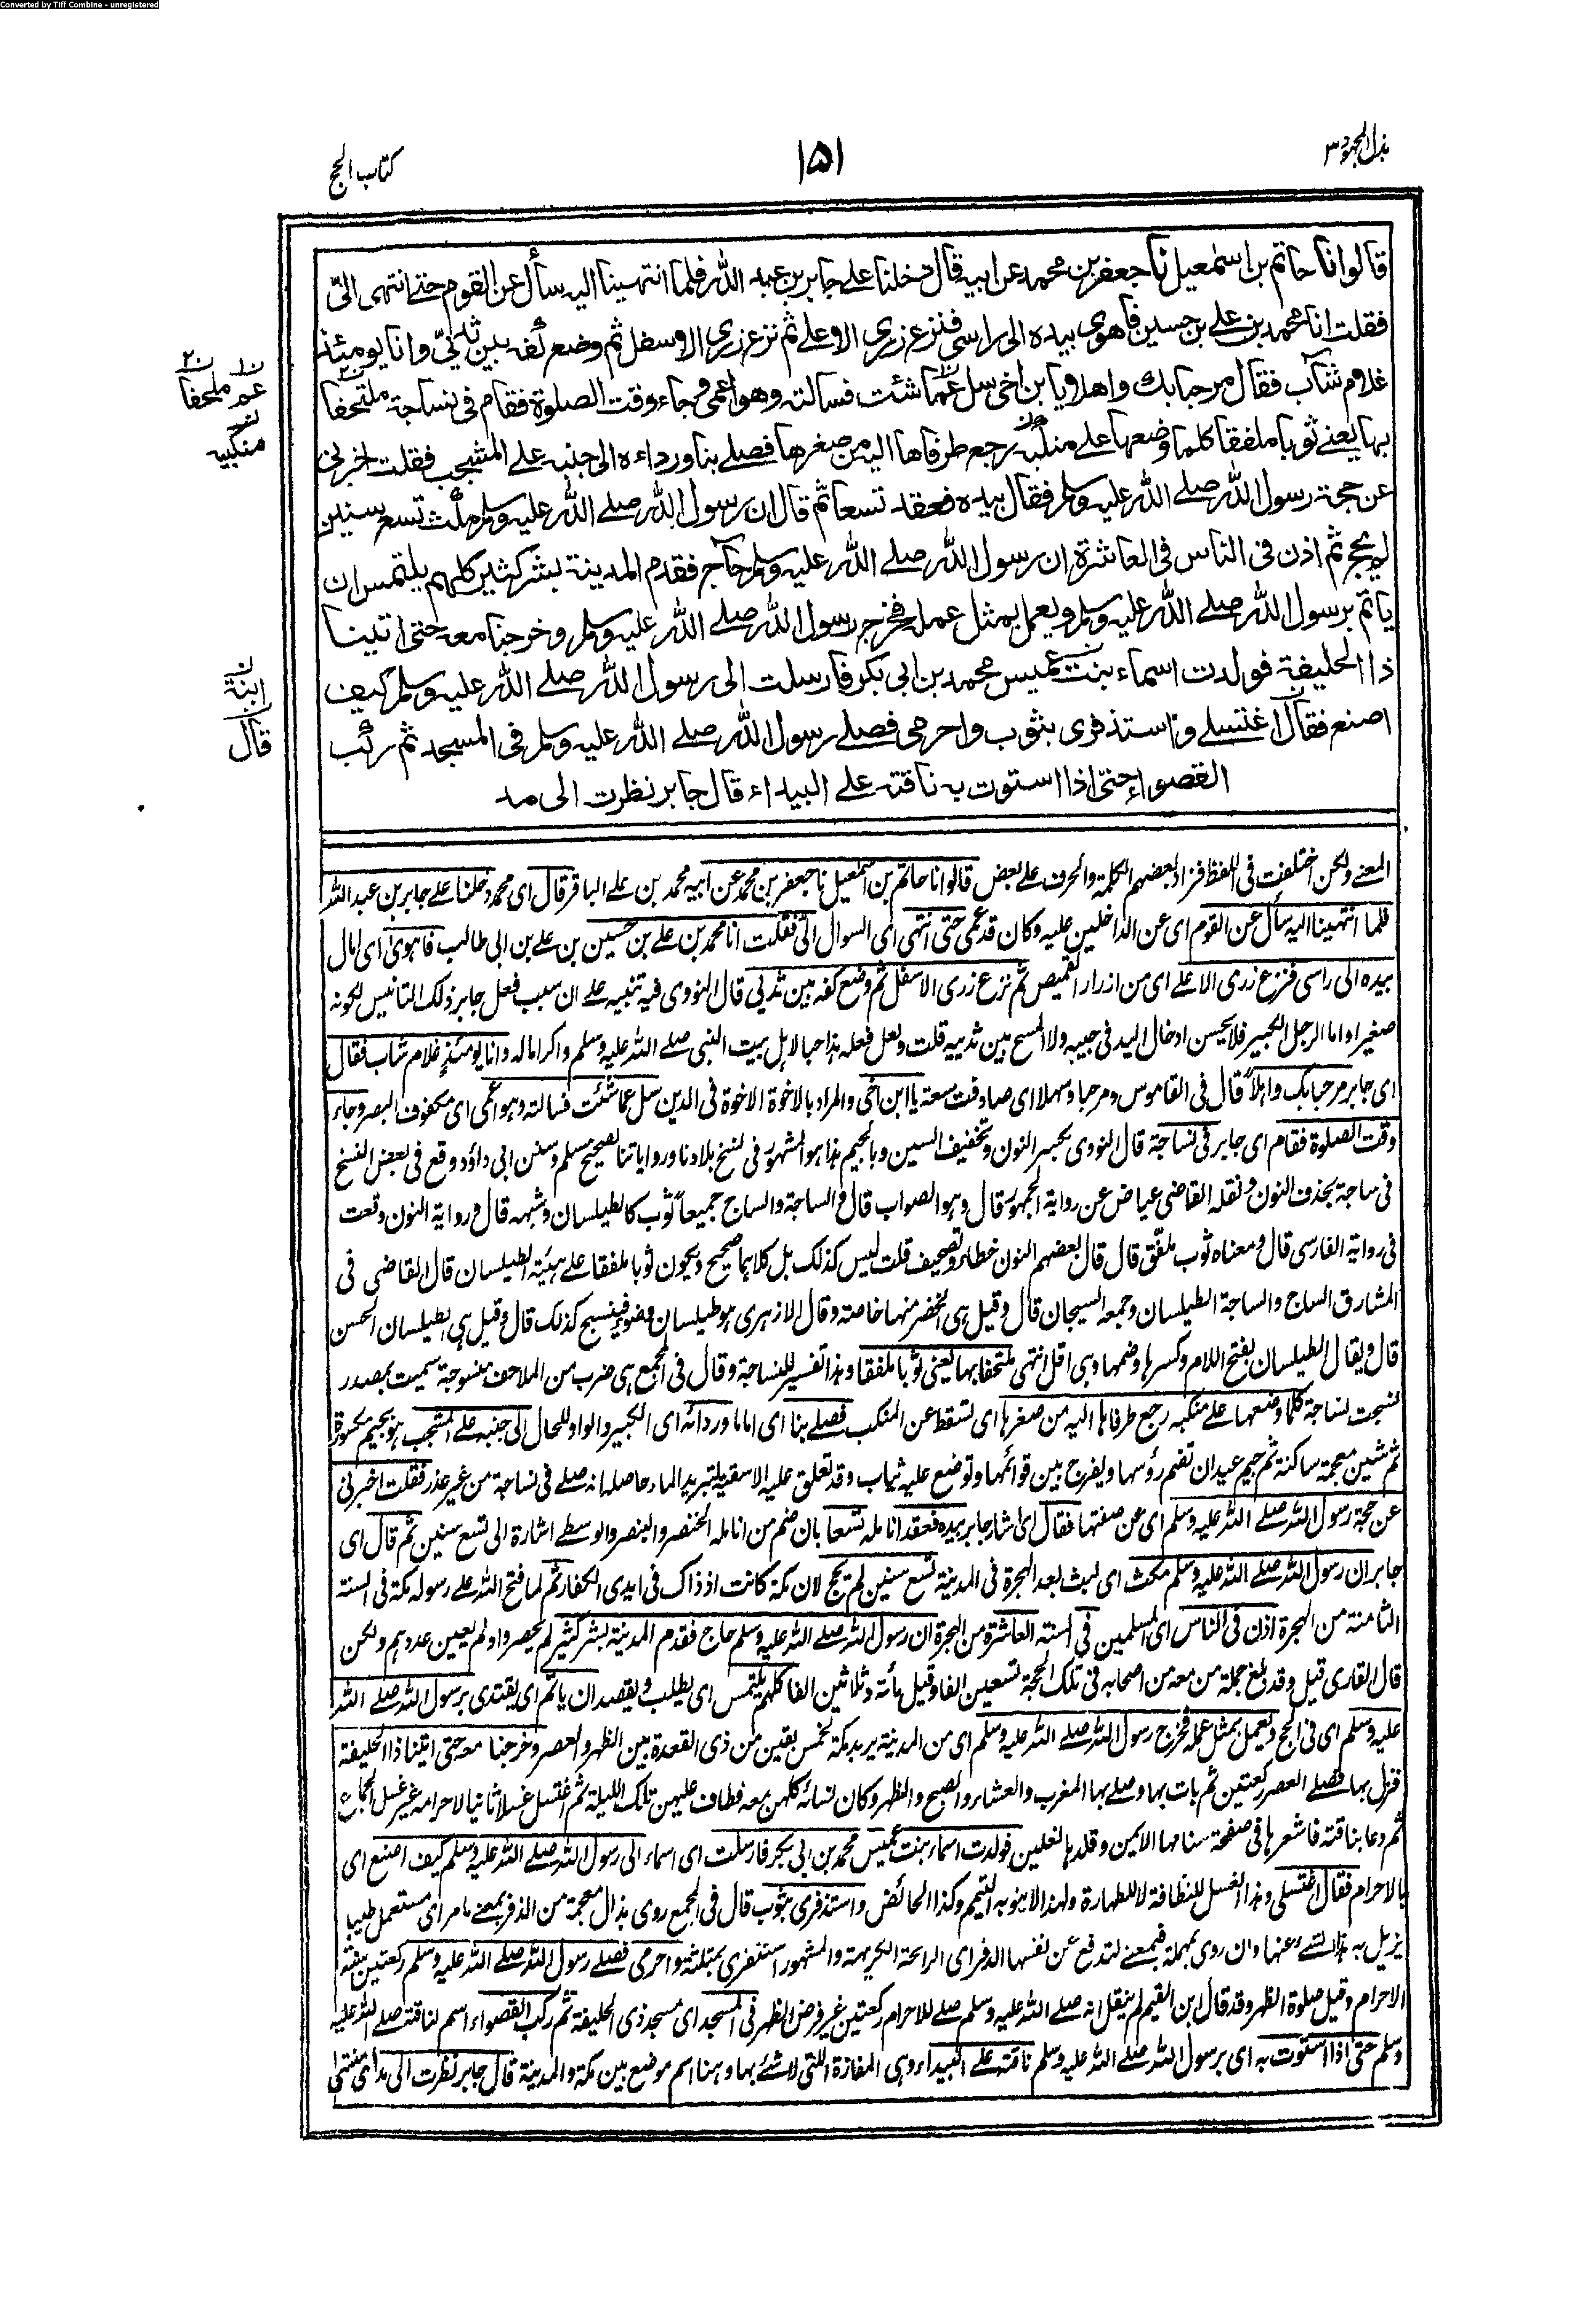 Converted by Tiff Combine - unregistered
بذل المجهود ٣
١٥١
كتاب الحج
قالوا نا حاتم بن اسمعيل نا جعفر بن محمد عن ابيه قال دخلنا على جابر بن عبد الله فلما انتهينا اليه سأل عن القوم حتى انتهى الىّ
فقلت انا محمد بن على بن حسين فاهوى بيده الى راسى فنزع زرى الاعلى ثم نزع زرى الاسفل ثم وضع كفه بين ثديىّ وانا يومئذ
غلام شاب فقال مرحبا بك واهلا يا بن اخى سل عما شئت فسالته وهو اعمى وجاء وقت الصلوة فقام فى نساجة ملتحفا
بها يعنى ثوبا ملفقا كلما وضعها على منكبه رجع طرفاها اليه من صغرها فصلى بنا ورداءه الى جنبه على المشجب فقلت اخبرنى
عن حجة رسول الله صلى الله عليه وسلم فقال بيده فعقد تسعا ثم قال ان رسول الله صلى الله عليه وسلم مكث تسع سنين
لم يحج ثم اذن فى الناس فى العاشرة ان رسول الله صلى الله عليه وسلم حاج فقدم المدينة بشر كثير كلهم يلتمس ان
ياتم برسول الله صلى الله عليه وسلم ويعمل بمثل عمله فخرج رسول الله صلى الله عليه وسلم وخرجنا معه حتى اتينا
ذا الحليفة فولدت اسماء بنت عميس محمد بن ابى بكر فارسلت الى رسول الله صلى الله عليه وسلم كيف
اصنع فقال اغتسلى واستذفرى بثوب واحرمى فصلى رسول الله صلى الله عليه وسلم فى المسجد ثم ركب
القصواء حتى اذا استوت به ناقته على البيداء قال جابر نظرت الى مد
عم ملحفا
منكبيه
ابنة
قال
المعنى ولكن اختلفت فى اللفظ فزاد بعضهم الكلمة والحرف على بعض قالوا نا حاتم بن اسمعيل نا جعفر بن محمد عن ابيه محمد بن على الباقر قال اى محمد دخلنا على جابر بن عبد الله
فلما انتهينا اليه سأل عن القوم اى عن الداخلين عليه وكان قد عمى حتى انتهى اى السوال الىّ فقلت انا محمد بن على بن حسين بن على بن ابى طالب فاهوى اى امال
بيده الى راسى فنزع زرى الاعلى اى من ازرار القميص ثم نزع زرى الاسفل ثم وضع كفه بين ثديى قال النووى فيه تنبيه على ان سبب فعل جابر ذلك التانيس لكونه
صغيرا واما الرجل الكبير فلا يحسن ادخال اليد فى جيبه ولا المسح بين ثدييه قلت ولعل فعله هذا حبا لاهل بيت النبى صلى الله عليه وسلم واكراما له وانا يومئذ غلام شاب فقال
اى جابر مرحبا بك واهلاً قال فى القاموس ومرحبا وسهلا اى صادفت سعة يا ابن اخى والمراد بالاخوة الاخوة فى الدين سل عما شئت فسالته وهو اعمى اى مكفوف البصر وجاء
وقت الصلوة فقام اى جابر فى نساجة قال النووى بكسر النون وتخفيف السين وبالجيم هذا هو المشهور فى نسخ بلادنا ورواياتنا لصحيح مسلم وسنن ابى داؤد ووقع فى بعض النسخ
فى ساجة بحذف النون ونقله القاضى عياض عن رواية الجمهور قال وهو الصواب قال والساجة والساج جميعاً ثوب كالطيلسان وشبهه قال ورواية النون وقعت
فى رواية الفارسى قال ومعناه ثوب ملفّق قال قال بعضهم النون خطاء وتصحيف قلت ليس كذلك بل كلاهما صحيح ويكون ثوبا ملفقا على هيئة الطيلسان قال القاضى فى
المشارق الساج والساجة الطيلسان وجمعه السيجان قال وقيل هى الخضر منها خاصة وقال الازهرى هو طيلسان مقور ينسج كذلك قال وقيل هى الطيلسان الحسن
قال ويقال الطيلسان بفتح اللام وكسرها وضمها وهى اقل انتهى ملتحفا بها يعنى ثوبا ملفقا وهذا تفسير للنساجة وقال فى المجمع هى ضرب من الملاحف منسوجة سميت بمصدر
نسجت نساجة كلما وضعها على منكبه رجع طرفاها اليه من صغرها اى تسقط عن المنكب فصلى بنا اى اماما ورداءه اى الكبير والواو للحال الى جنبه على المشجب هو بجيم مكسورة
ثم شين معجمة ساكنة ثم جيم عيدان تضم رؤسها ويفرج بين قوائمها وتوضع عليه ثياب وقد تعلق عليه الاسقية لتبريد الماء حاصله انه صلى فى نساجة من غير عذر فقلت اخبرنى
عن حجة رسول الله صلى الله عليه وسلم اى عن صفتها فقال اى اشار جابر بيده فعقد انامله تسعا بان ضم من انامله الخنصر والبنصر والوسطى اشارة الى تسع سنين ثم قال اى
جابر ان رسول الله صلى الله عليه وسلم مكث اى لبث بعد الهجرة فى المدينة تسع سنين لم يحج لان مكة كانت اذ ذاك فى ايدى الكفار ثم لما فتح الله على رسوله مكة فى السنة
الثامنة من الهجرة اذن فى الناس اى المسلمين فى السنة العاشرة من الهجرة ان رسول الله صلى الله عليه وسلم حاج فقدم المدينة بشر كثير لم يحصروا ولم يعين عددهم ولكن
قال القارى قيل وقد بلغ جملة من معه من اصحابه فى تلك الحجة تسعين الفا وقيل مائة وثلاثين الفا كلهم يلتمس اى يطلب ويقصد ان ياتم اى يقتدى برسول الله صلى الله
عليه وسلم اى فى الحج ويعمل بمثل عمله فخرج رسول الله صلى الله عليه وسلم اى من المدينة يريد مكة لخمس بقين من ذى القعدة بين الظهر والعصر وخرجنا معه حتى اتينا ذا الحليفة
فنزل بها فصلى العصر ركعتين ثم بات بها وصلى بها المغرب والعشاء والصبح والظهر وكان نسائه كلهن معه فطاف عليهن تلك الليلة ثم اغتسل غسلا ثانيا لاحرامه غير غسل الجماع
ثم دعا بناقته فاشعرها فى صفحة سنامها الايمن وقلدها نعلين فولدت اسماء بنت عميس محمد بن ابى بكر فارسلت اى اسماء الى رسول الله صلى الله عليه وسلم كيف اصنع اى
بالاحرام فقال اغتسلى وهذا الغسل للنظافة لا للطهارة ولهذا لا ينوبه التيمم وكذا الحائض واستذفرى بثوب قال فى المجمع روى بذال معجمة من الذفر بمعنى ما مر اى مستعمل طيبا
يزيل به هذا الشئ عنها وان روى بمهملة فبمعنى لتدفع عن نفسها الدفر اى الرائحة الكريهة والمشهور استثفرى بمثلثة واحرمى فصلى رسول الله صلى الله عليه وسلم ركعتين سنة
الاحرام وقيل صلوة الظهر وقد قال ابن القيم لم ينقل انه صلى الله عليه وسلم صلى للاحرام ركعتين غير فرض الظهر فى المسجد اى مسجد ذى الحليفة ثم ركب القصواء اسم لناقته صلى الله عليه
وسلم حتى اذا استوت به اى برسول الله صلى الله عليه وسلم ناقته على البيداء وهى المفازة التى لا شئ بها وهنا اسم موضع بين مكة والمدينة قال جابر نظرت الى مد اى منتهى